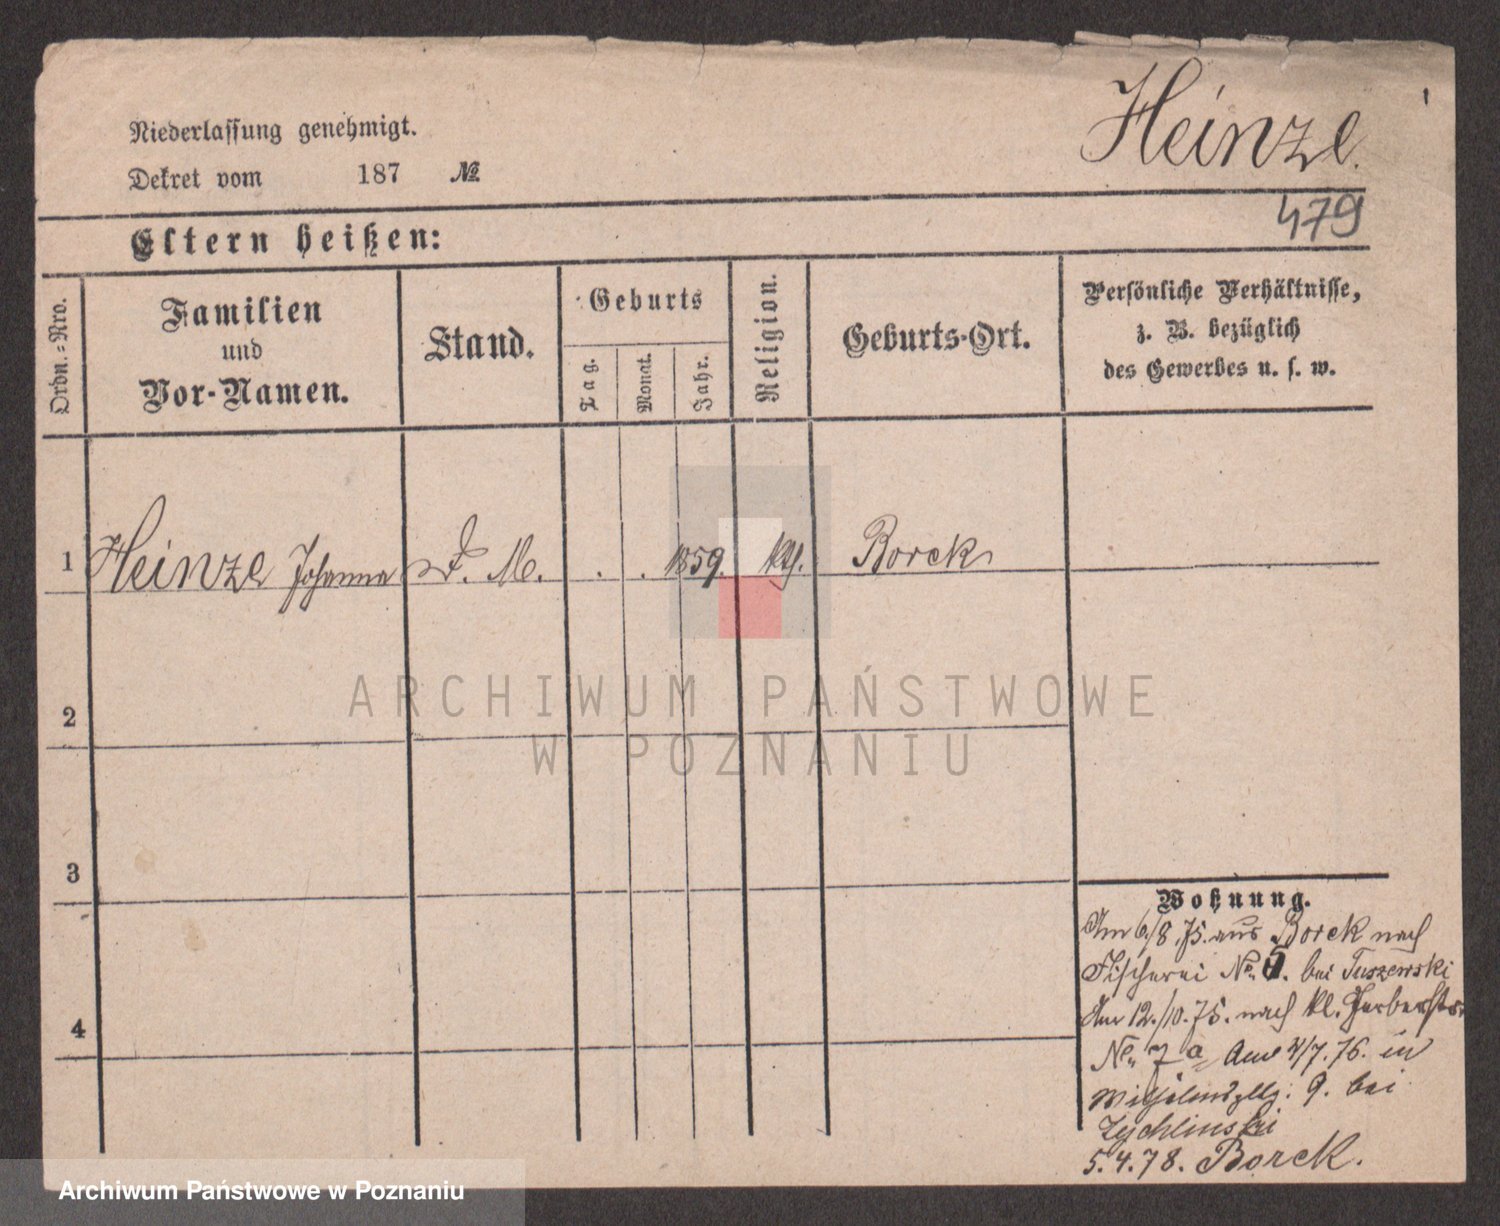 Heinze.
Niederlassung genehmigt.
Dekret vom 187 №
479
Eltern heißen:
Ordn.=Nro.
Familien
und
Vor-Namen.
Stand.
Geburts
Tag.
Monat.
Jahr.
Religion.
Geburts-Ort.
Persönliche Verhältnisse,
z. B. bezüglich
des Gewerbes u. s. w.
1 Heinze Johanna D. M. . . 1859. kth. Borck
2
3
4
Wohnung.
Am 6/8.75. aus Borck nach
Fischerei No. 5. bei Tuszewski
Am 12./10.75. nach kl. Gerberstr.
No. 7 a Am /7.76. in
Wilhelmspltz: 9. bei
Zychlinski
5.4.78. Borck.
ARCHIWUM PAŃSTWOWE
W POZNANIU
Archiwum Państwowe w Poznaniu